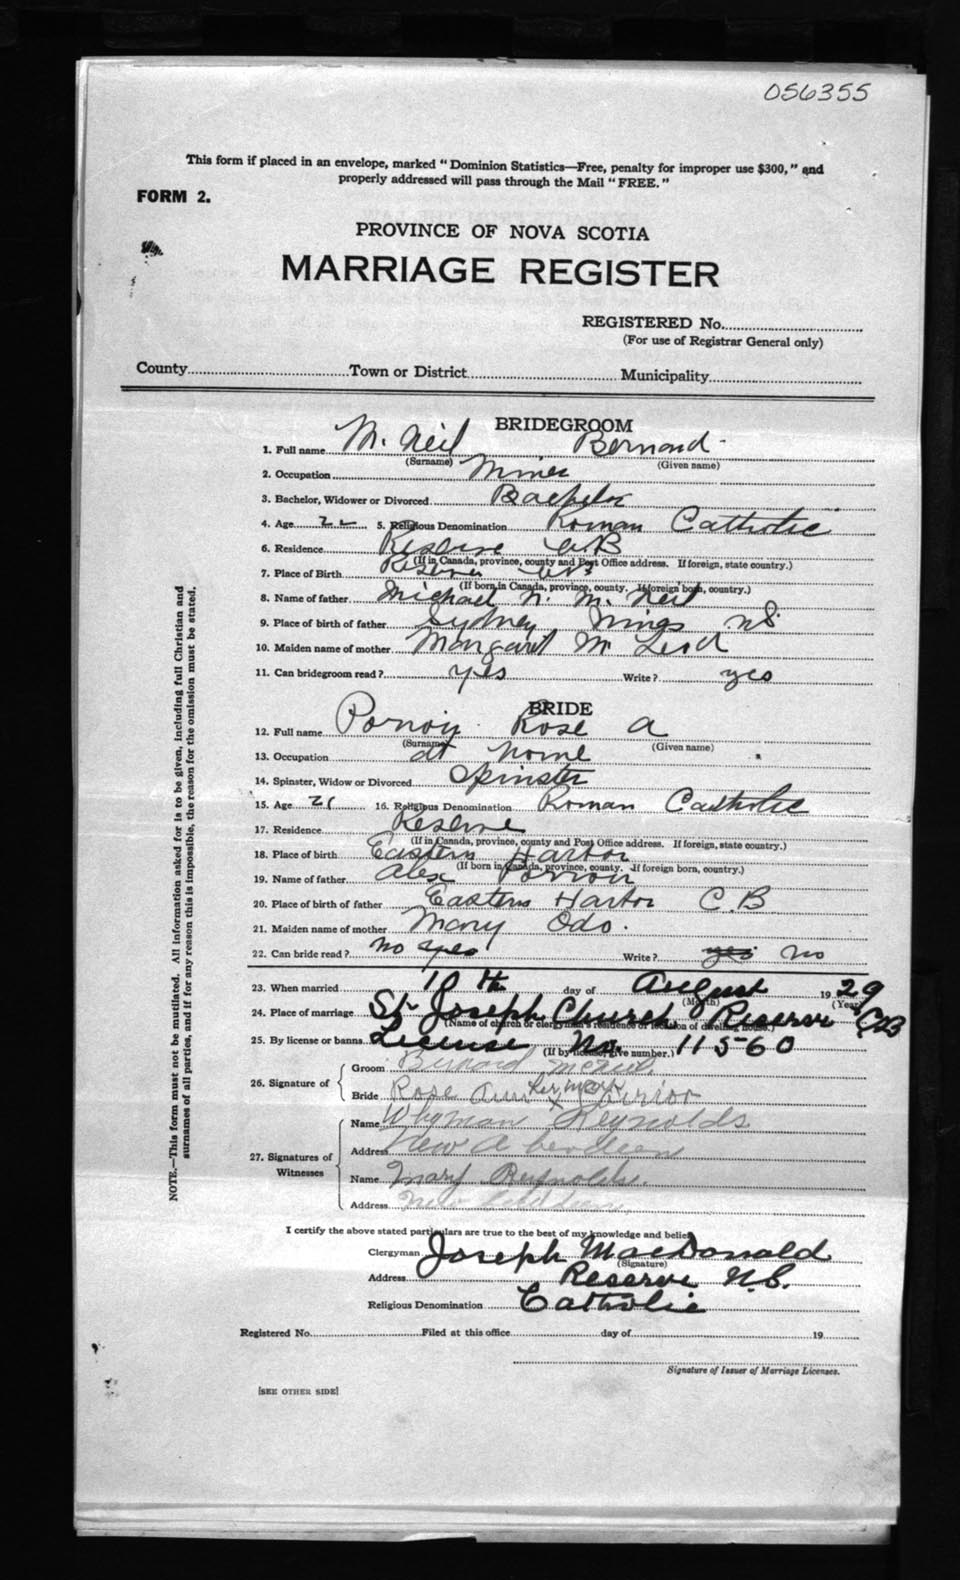 056355
This form if placed in an envelope, marked "Dominion Statistics—Free, penalty for improper use $300," and
properly addressed will pass through the Mail "FREE."
FORM 2.
PROVINCE OF NOVA SCOTIA
MARRIAGE REGISTER
REGISTERED No.
(For use of Registrar General only)
County Town or District Municipality
BRIDEGROOM
1. Full name Mc Neil Bernard
(Surname) (Given name)
2. Occupation Miner
3. Bachelor, Widower or Divorced Bachelor
4. Age 22 5. Religious Denomination Roman Catholic
6. Residence Reserve C.B
(If in Canada, province, county and Post Office address. If foreign, state country.)
7. Place of Birth Reserve C.B
(If born in Canada, province, county. If foreign born, country.)
8. Name of father Michael N. Mc Neil
9. Place of birth of father Sydney Mines N.S.
10. Maiden name of mother Margaret Mc Leod
11. Can bridegroom read? yes Write? yes
BRIDE
12. Full name Rose A
(Surname) (Given name)
13. Occupation at home
14. Spinster, Widow or Divorced Spinster
15. Age 21 16. Religious Denomination Roman Catholic
17. Residence Reserve
(If in Canada, province, county and Post Office address. If foreign, state country.)
18. Place of birth Eastern Harbor
(If born in Canada, province, county. If foreign born, country.)
19. Name of father Alex
20. Place of birth of father Eastern Harbor C.B
21. Maiden name of mother Mary Odo.
22. Can bride read? no yes Write? yes no
23. When married 10th day of August 1929
(Month) (Year)
24. Place of marriage St. Joseph Church Reserve C.B
(Name of church or clergyman's residence or location of dwelling house.)
25. By license or banns License No. 11560
(If by license, give number.)
26. Signature of
Groom Bernard McNeil
her mark
Bride Rose Ann x
27. Signatures of Witnesses
Name Whyman Reynolds
Address New Aberdeen
Name Mary Reynolds.
Address New Aberdeen
I certify the above stated particulars are true to the best of my knowledge and belief.
Clergyman Joseph MacDonald
(Signature)
Address Reserve N.S.
Religious Denomination Catholic
Registered No. Filed at this office day of 19
Signature of Issuer of Marriage Licenses.
[SEE OTHER SIDE]
NOTE.—This form must not be mutilated. All information asked for is to be given, including full Christian and
surnames of all parties, and if for any reason this is impossible, the reason for the omission must be stated.